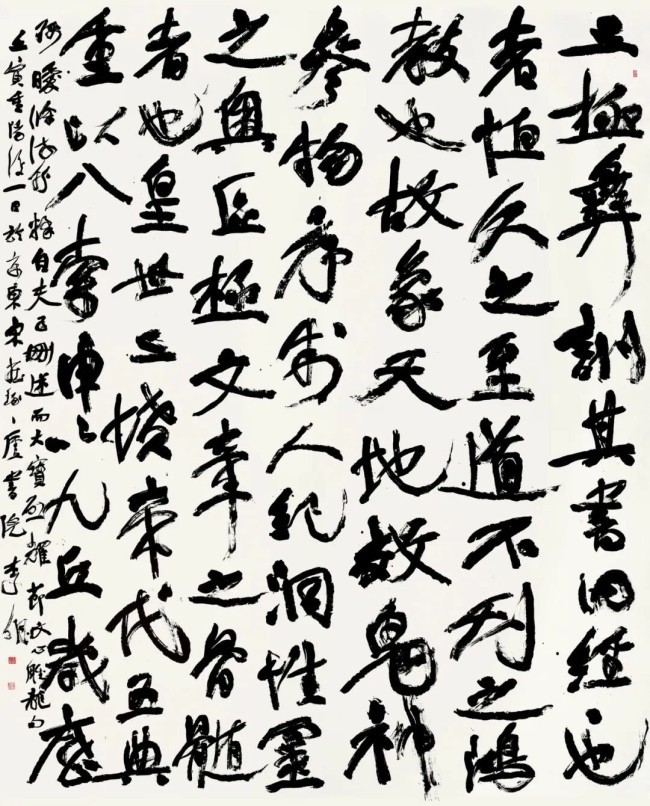 三極彝訓其書曰經也
者恒久之至道不刊之鴻
教也故象天地效鬼神
參物序制人紀洞性靈
之奧區極文章之骨髓
者也皇世三墳帝代五典
重以八索申以九丘歲歷
綿曖條流紛糅自夫子刪述而大寶啟耀 節文心雕龍句
壬寅重陽後一日於京東宋莊廬書院